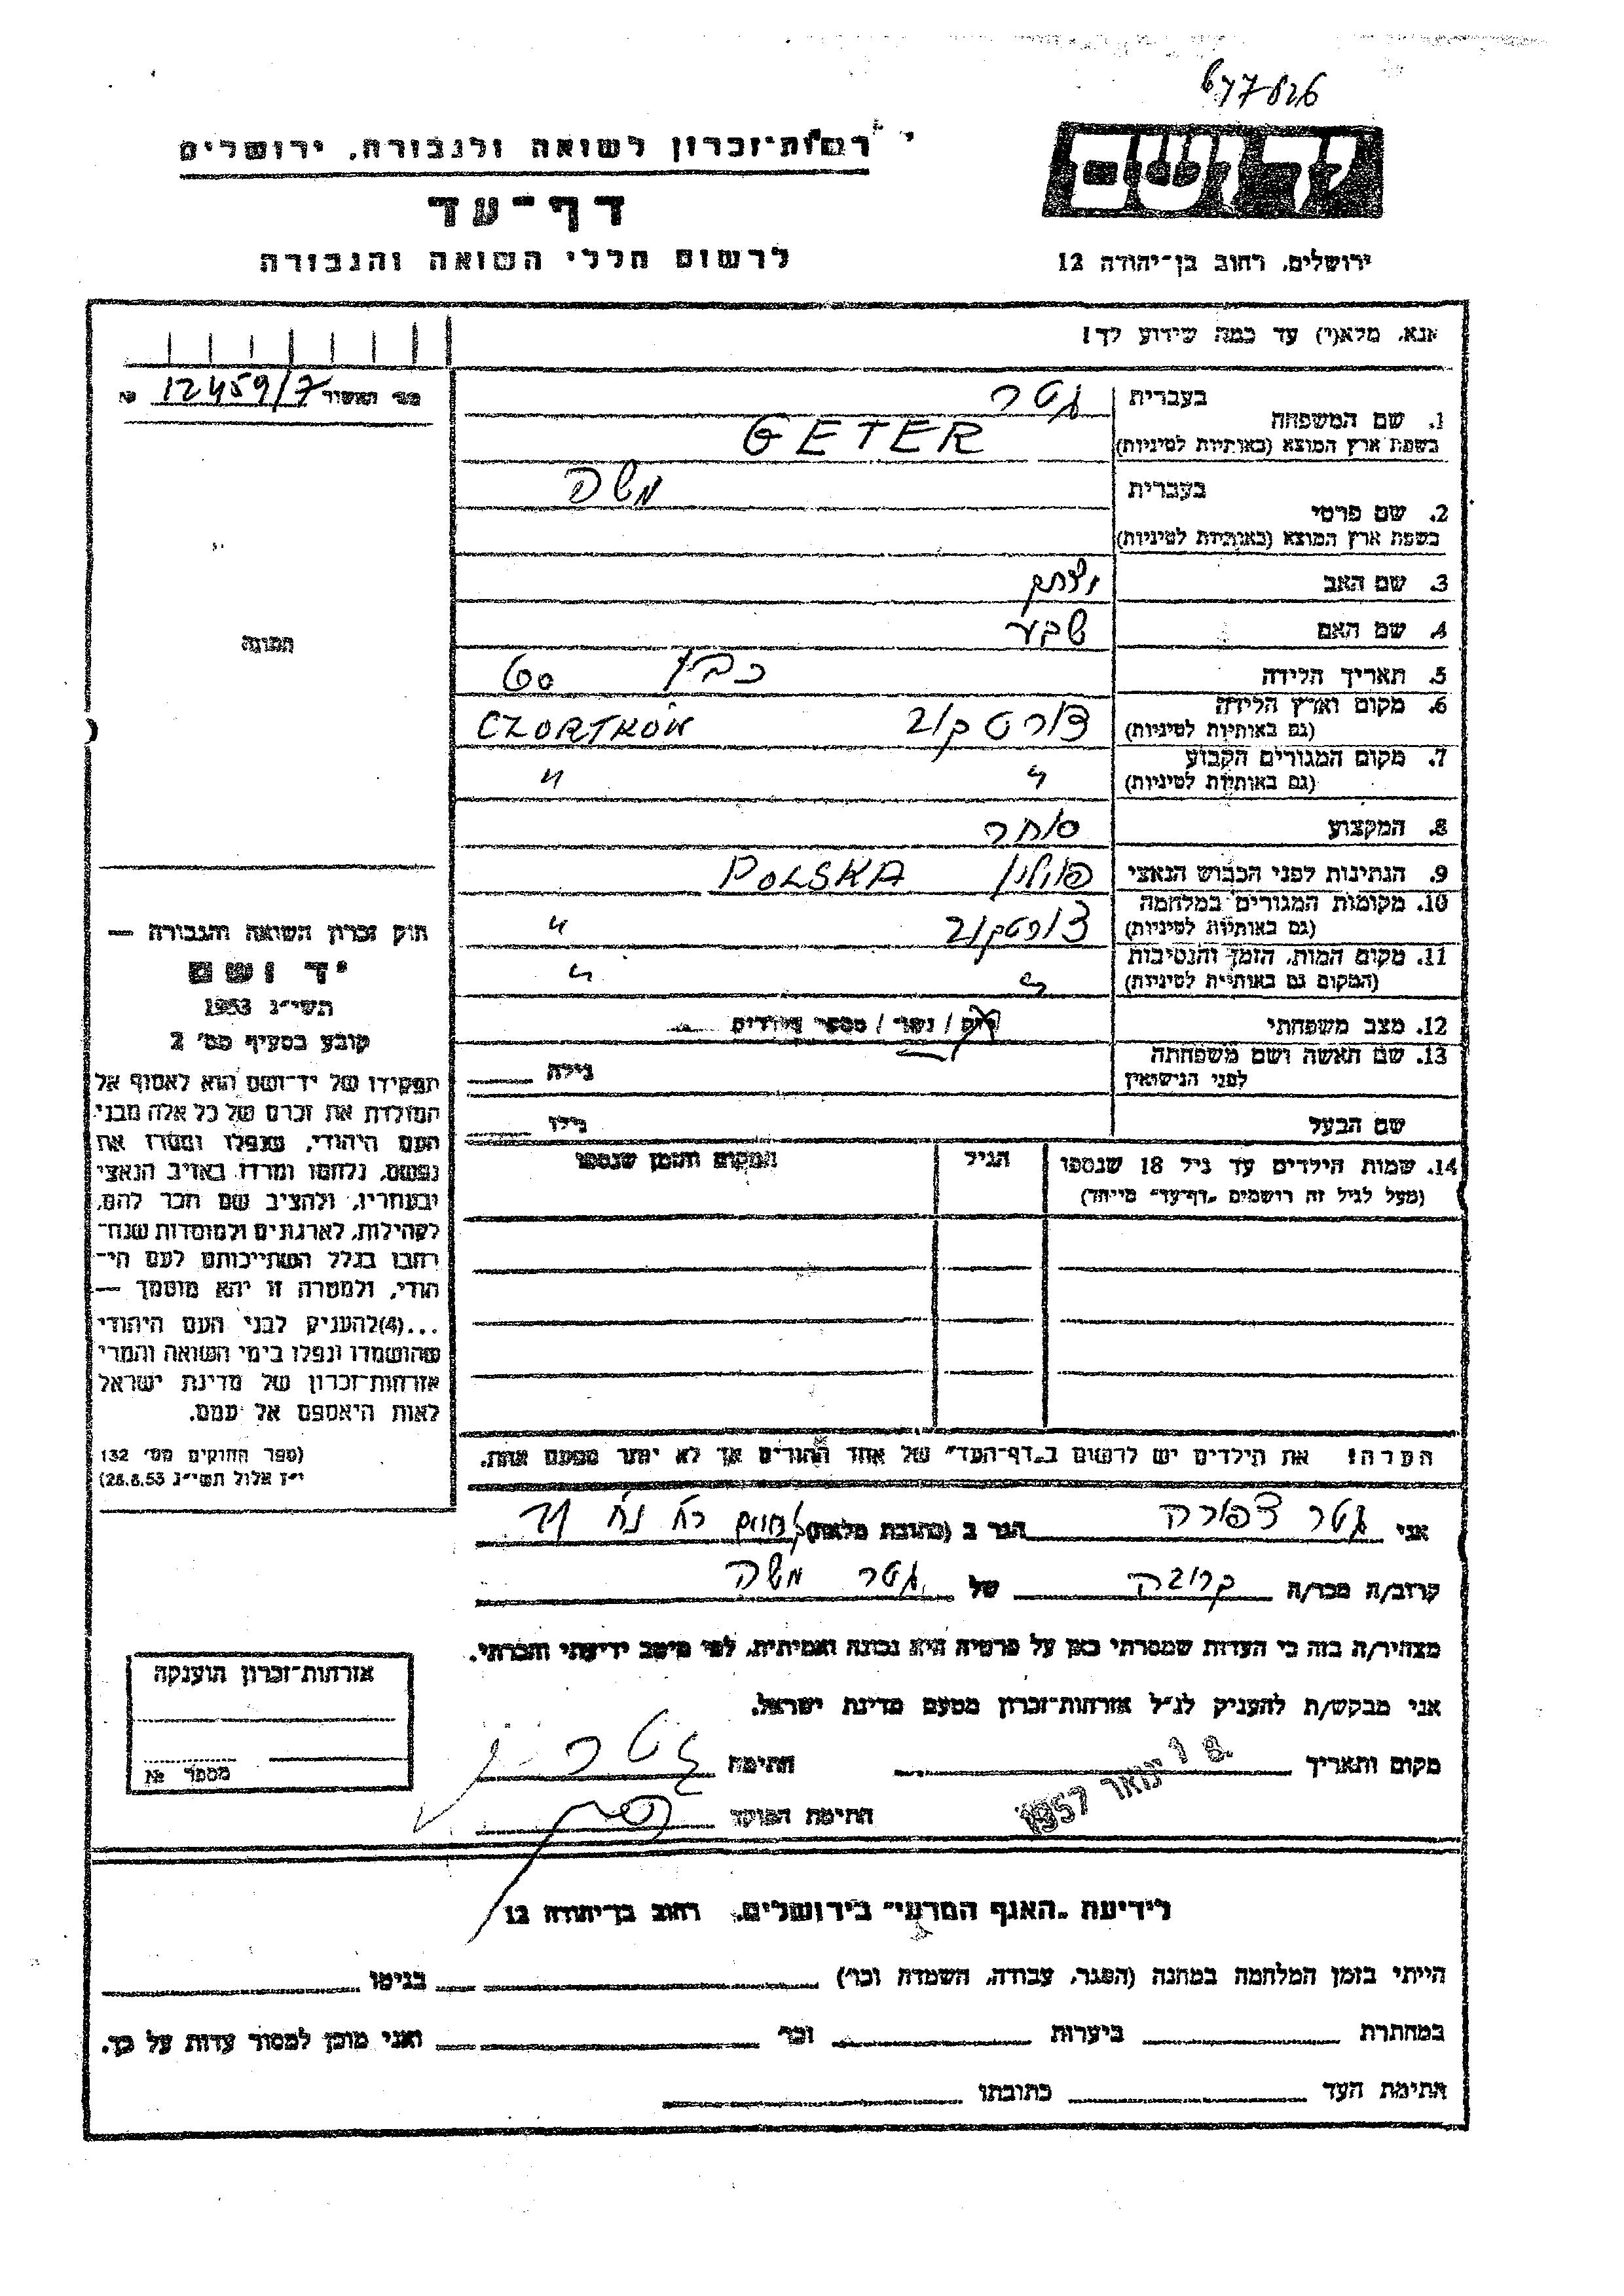 677826
רשות־זכרון לשואה ולגבורה, ירושלים
דף־עד
לרשום חללי השואה והגבורה
יד ושם
ירושלים, רחוב בן־יהודה 12
אנא, מלא(י) עד כמה שידוע לך!
מס׳ האשור 12459/7 №
1. שם המשפחה
בעברית גטר
בשפת ארץ המוצא (באותיות לטיניות) GETER
2. שם פרטי
בעברית משה
בשפת ארץ המוצא (באותיות לטיניות)
3. שם האב יצחק
4. שם האם שבע
5. תאריך הלידה כבן 60
6. מקום וארץ הלידה (גם באותיות לטיניות) צ׳ורטקוב CZORTKÓW
7. מקום המגורים הקבוע (גם באותיות לטיניות) " "
8. המקצוע סוחר
9. הנתינות לפני הכבוש הנאצי פולין POLSKA
10. מקומות המגורים במלחמה (גם באותיות לטיניות) צ׳ורטקוב "
11. מקום המות, הזמן והנסיבות (המקום גם באותיות לטיניות) " "
12. מצב משפחתי רוק / נשוי / מספר ילדים
13. שם האשה ושם משפחתה לפני הנישואין גילה
שם הבעל גילו
14. שמות הילדים עד גיל 18 שנספו הגיל המקום והזמן שנספו
(מעל לגיל זה רושמים „דף־עד״ מיוחד)
הערה: את הילדים יש לרשום ב„דף־העד״ של אחד ההורים אך לא יותר מפעם אחת.
תמונה
חוק זכרון השואה והגבורה —
יד ושם
תשי״ג 1953
קובע בסעיף מס׳ 2
תפקידו של יד־ושם הוא לאסוף אל
המולדת את זכרם של כל אלה מבני
העם היהודי, שנפלו ומסרו את
נפשם, נלחמו ומרדו באויב הנאצי
ובעוזריו, ולהציב שם וזכר להם,
לקהילות, לארגונים ולמוסדות שנח־
רבו בגלל השתייכותם לעם הי־
הודי, ולמטרה זו יהא מוסמך —
...(4)להעניק לבני העם היהודי
שהושמדו ונפלו בימי השואה והמרי
אזרחות־זכרון של מדינת ישראל
לאות היאספם אל עמם.
(ספר החוקים מס׳ 132
י״ז אלול תשי״ג 28.8.53)
אני גטר צפורה הגר ב (כתובת מלאה)
קרוב/ה מכר/ה קרובה של גטר משה
מצהיר/ה בזה כי העדות שמסרתי כאן על פרטיה היא נכונה ואמיתית, לפי מיטב ידיעתי והכרתי.
אני מבקש/ת להעניק לנ״ל אזרחות־זכרון מטעם מדינת ישראל.
מקום ותאריך 18 ינואר 1957 חתימה גטר
חתימת הפוקד
אזרחות־זכרון הוענקה
מספר №
לידיעת „האגף המדעי״ בירושלים, רחוב בן־יהודה 12
הייתי בזמן המלחמה במחנה (הסגר, עבודה, השמדה וכו׳) בגיטו
במחתרת ביערות וכו׳ ואני מוכן למסור עדות על כך.
חתימת העד כתובתו